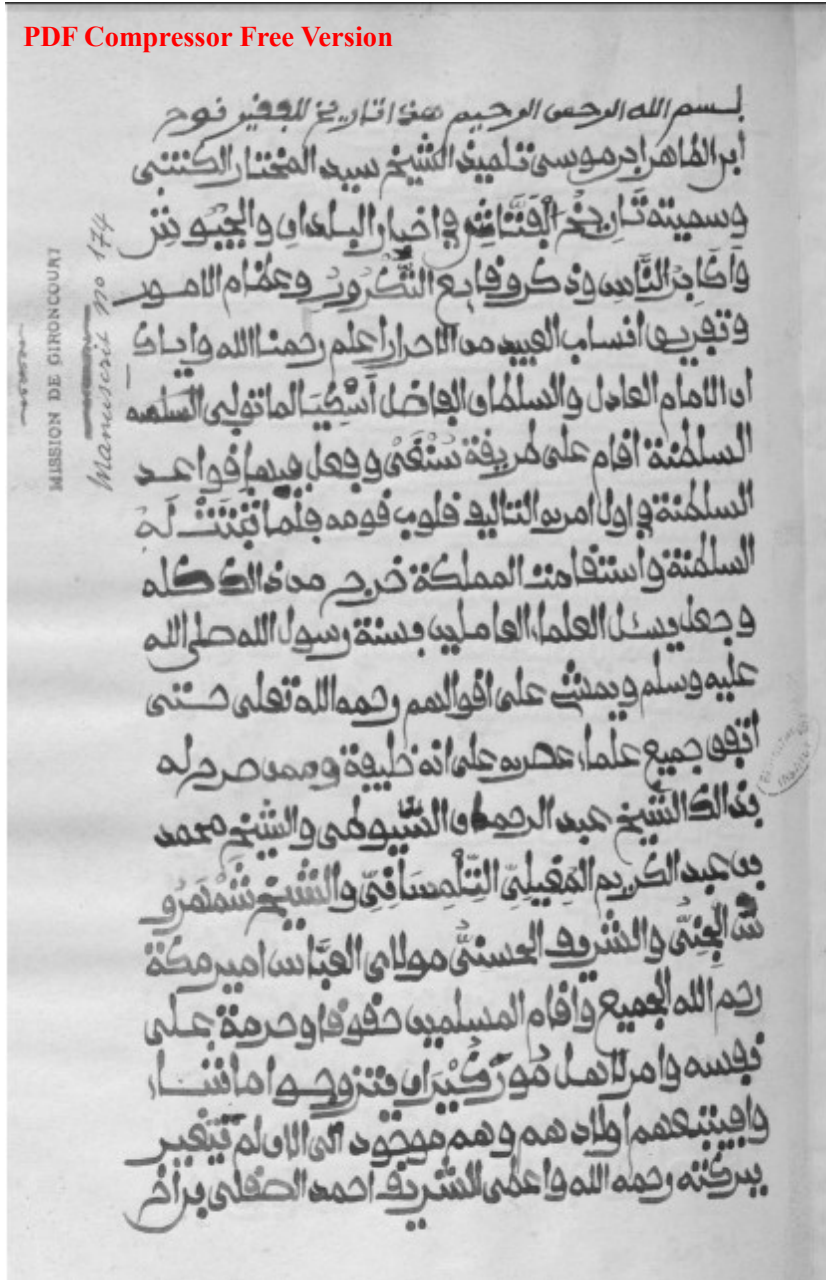 PDF Compressor Free Version
بسم الله الرحمن الرحيم هذا تاريخ للفقير نوح
ابن الطاهر ابن موسى تلميذ الشيخ سيد المختار الكنتى
وسميته تاريخ الفتاش في اخبار البلدان والجيوش
واكابر الناس وذكر وقايع التكرور وعظام الامور
وتفريق انساب العبيد من الاحرار اعلم رحمنا الله واياك
ان الامام العادل والسلطان الفاضل اسكيا لما تولى السلطنة
السلطنة اقام على طريقة سنغى وفعل فيها قواعد
السلطنة في اول امره التاليف قلوب قومه فلما تثبتت له
السلطنة واستقامت المملكة خرج من ذالك كله
وجعل يسئل العلماء العاملين بسنة رسول الله صلى الله
عليه وسلم ويمش على اقوالهم رحمه الله تعلى حتى
اتفق جميع علماء عصره على انه خليفة وممن صرح له
بذالك الشيخ عبد الرحمان السيوطى والشيخ محمد
بن عبد الكريم المغيلى التلمسانى والشيخ شمهرو
ش الجنى والشريف الحسنى مولاى العباس امير مكة
رحم الله الجميع واقام المسلمين حقوقا وحرمة على
نفسه وامر لاهل مور كيران فتزوجوا ما شاء
اولادهم وهم موجود الى الان لم تتغير
ببركته رحمه الله واعطى الشريف احمد الصقلى
MISSION DE GIRONCOURT
Manuscrit no 174